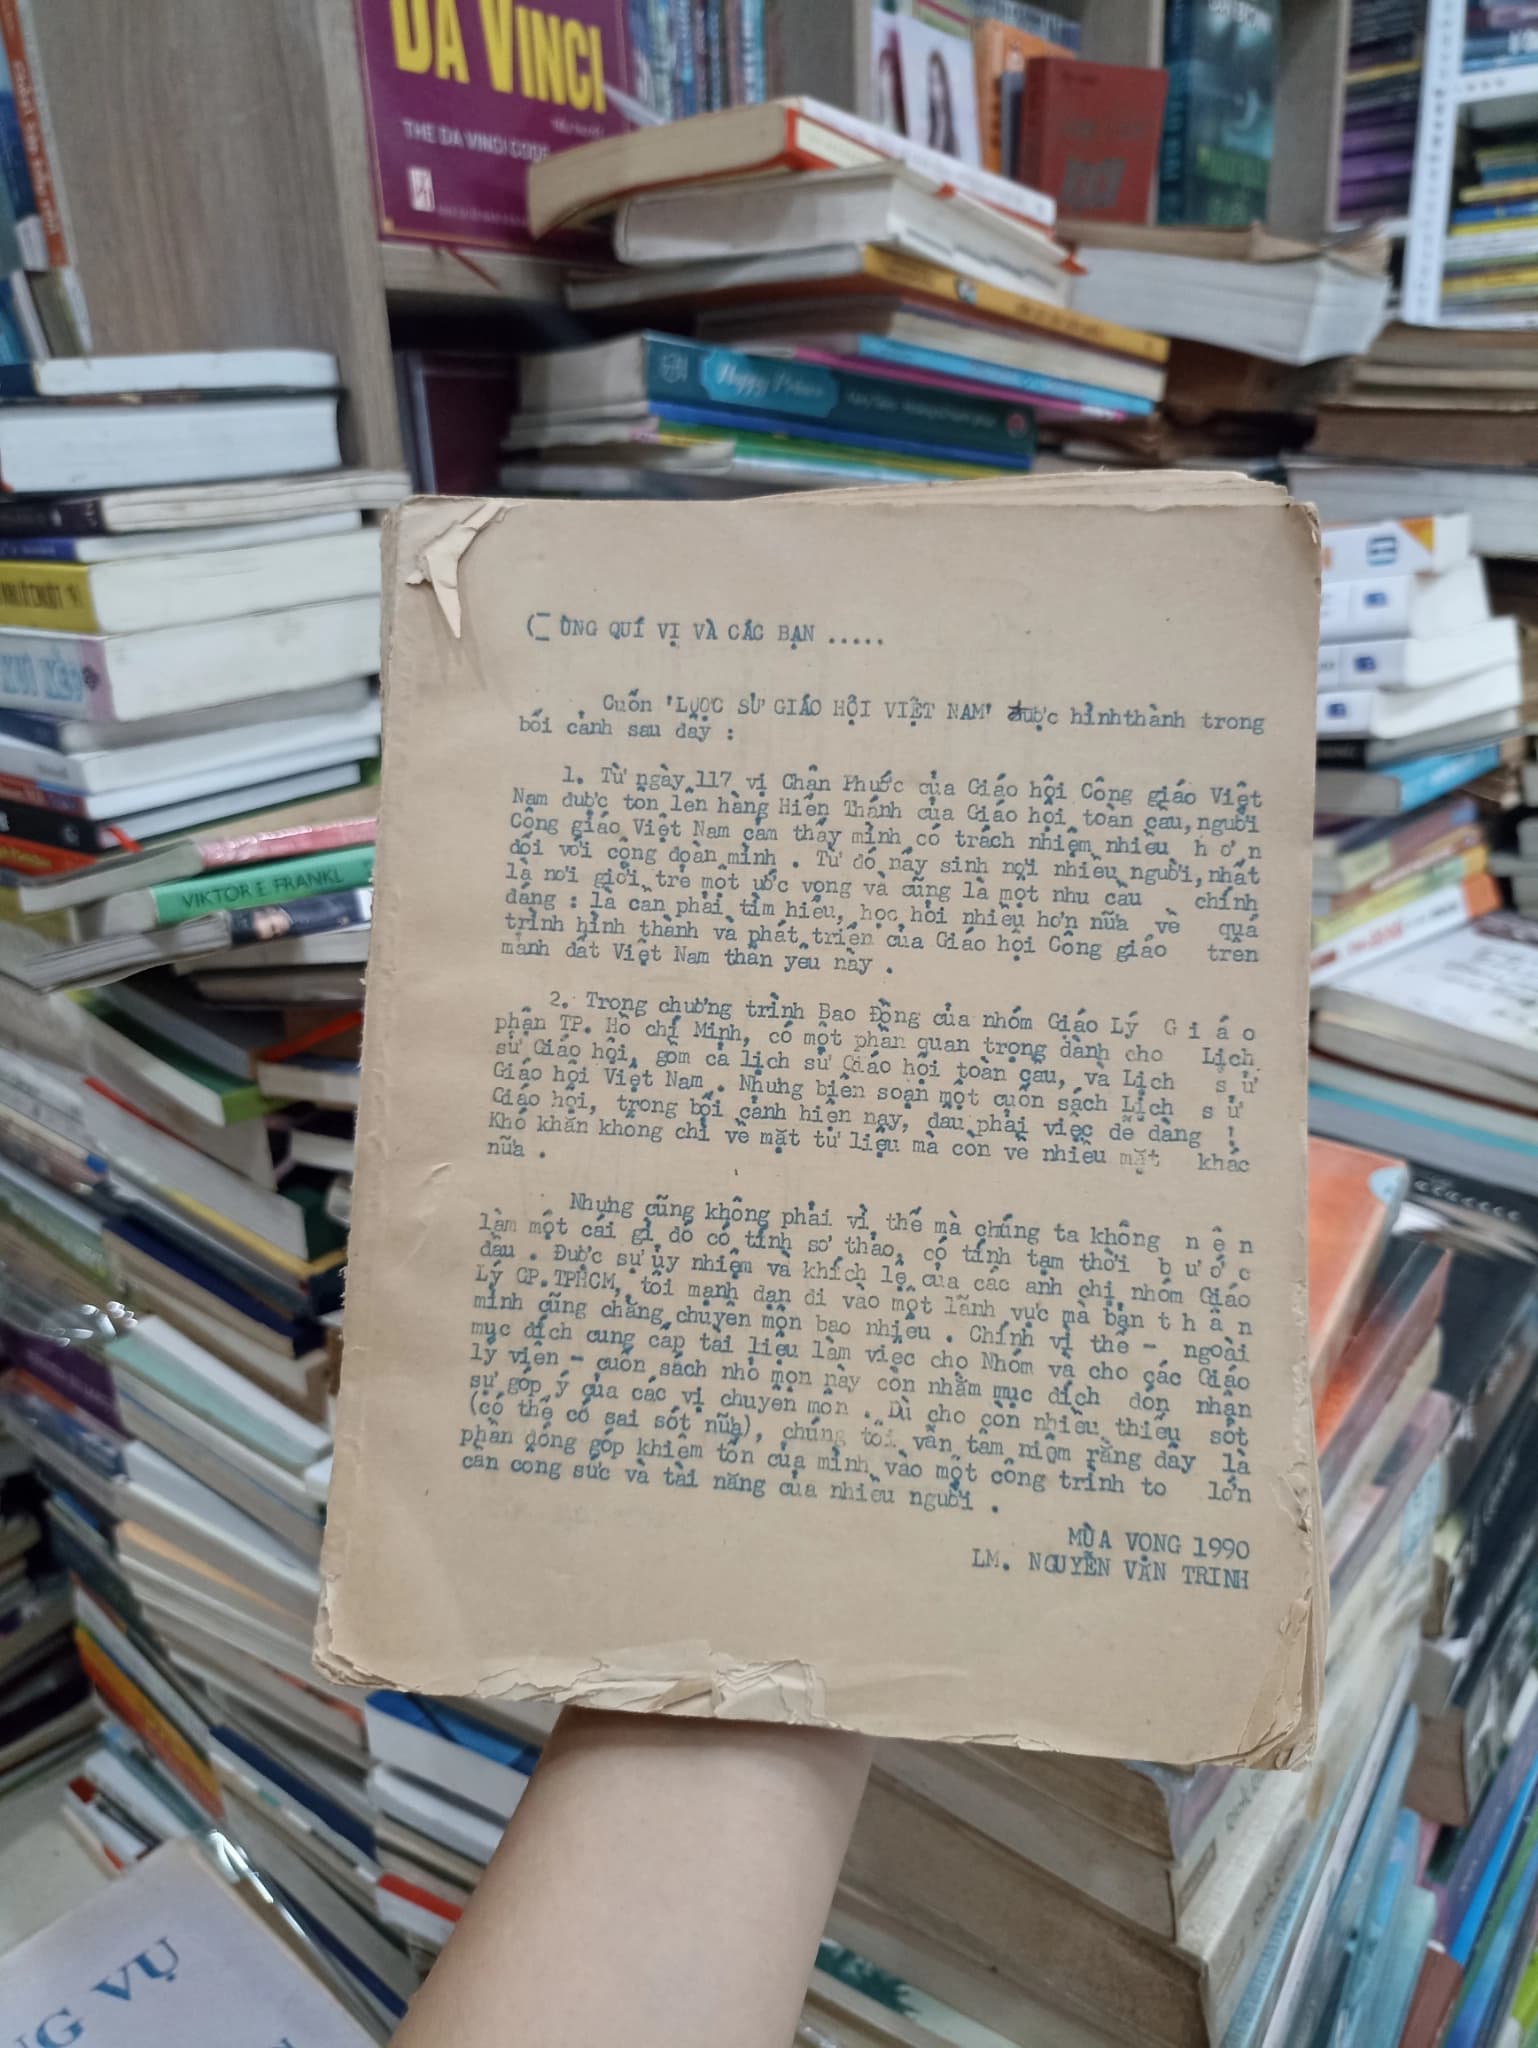 DA VINCI
THE DA VINCI CODE
Happy Prince
VIKTOR E. FRANKL
CÙNG QUÍ VỊ VÀ CÁC BẠN .....
Cuốn 'LƯỢC SỬ GIÁO HỘI VIỆT NAM' được hìnhthành trong
bối cảnh sau đây :
1. Từ ngày 117 vị Chân Phước của Giáo hội Công giáo Việt
Nam được tôn lên hàng Hiển Thánh của Giáo hội toàn cầu, người
Công giáo Việt Nam cảm thấy mình có trách nhiệm nhiều h ơ n
đối với cộng đoàn mình . Từ đó nẩy sinh nơi nhiều người, nhất
là nơi giới trẻ một ước vọng và cũng là một nhu cầu chính
đáng : là cần phải tìm hiểu, học hỏi nhiều hơn nữa về quá
trình hình thành và phát triển của Giáo hội Công giáo trên
mảnh đất Việt Nam thân yêu này .
2. Trong chương trình Bao Đồng của nhóm Giáo Lý G i á o
phận TP. Hồ chí Minh, có một phần quan trọng dành cho Lịch
sử Giáo hội, gồm cả lịch sử Giáo hội toàn cầu, và Lịch s ử
Giáo hội Việt Nam . Nhưng biên soạn một cuốn sách Lịch s ử
Giáo hội, trong bối cảnh hiện nay, đâu phải việc dễ dàng !
Khó khăn không chỉ về mặt tư liệu mà còn về nhiều mặt khác
nữa .
Nhưng cũng không phải vì thế mà chúng ta không n ê n
làm một cái gì đó có tính sơ thảo, có tính tạm thời b ư ớ c
đầu . Được sự ủy nhiệm và khích lệ của các anh chị nhóm Giáo
Lý GP.TPHCM, tôi mạnh dạn đi vào một lãnh vực mà bản t h â n
mình cũng chẳng chuyên môn bao nhiêu . Chính vì thế - ngoài
mục đích cung cấp tài liệu làm việc cho Nhóm và cho các Giáo
lý viên - cuốn sách nhỏ mọn này còn nhằm mục đích đón nhận
sự góp ý của các vị chuyên môn . Dù cho còn nhiều thiếu sót
(có thể có sai sót nữa), chúng tôi vẫn tâm niệm rằng đây là
phần đóng góp khiêm tốn của mình vào một công trình to lớn
cần công sức và tài năng của nhiều người .
MÙA VỌNG 1990
LM. NGUYỄN VĂN TRINH
NG VỤ